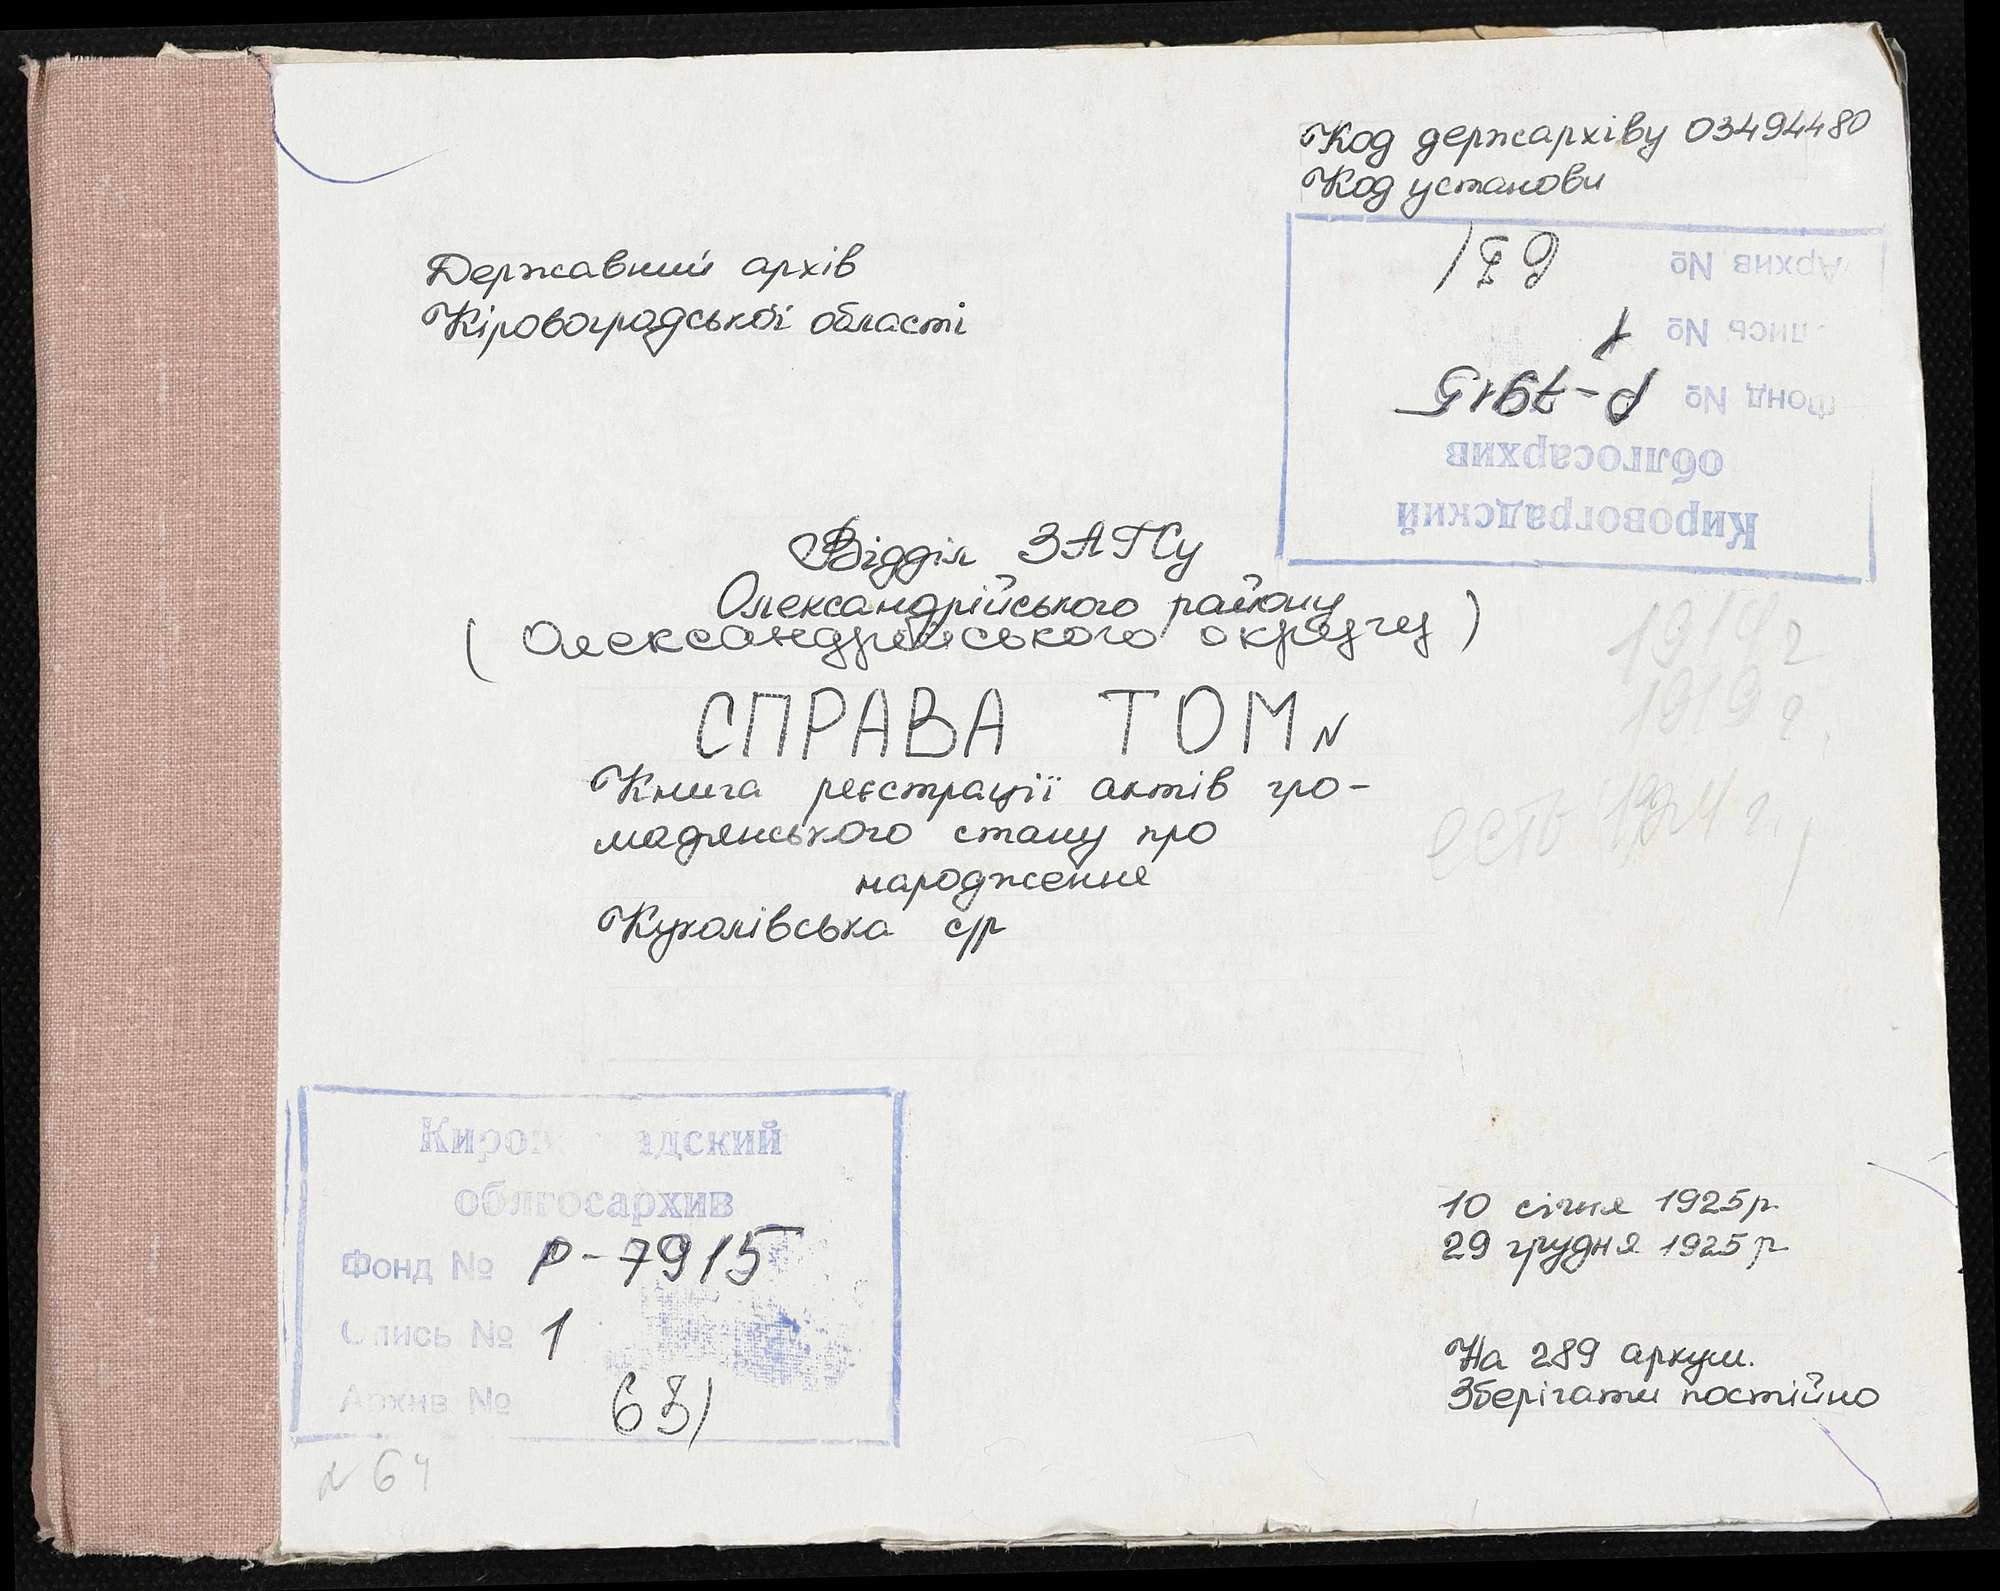 Код держархіву 03494480
Код установи
Державний архів
Кіровоградської області
Кировоградский
облгосархив
Фонд № Р-7915
опись № 1
Архив №
Відділ ЗАГСу
Олександрійського району
(Олександрійського округу)
1919г
1919г.
СПРАВА ТОМ №
Книга реєстрації актів гро-
мадянського стану про
народження
есть 1924 г.
Кухолівська с/р
Кировоградский
облгосархив
Фонд № Р-7915
Опись № 1
Архив №
№ 64
10 січня 1925р.
29 грудня 1925р
На 289 аркуш.
Зберігати постійно